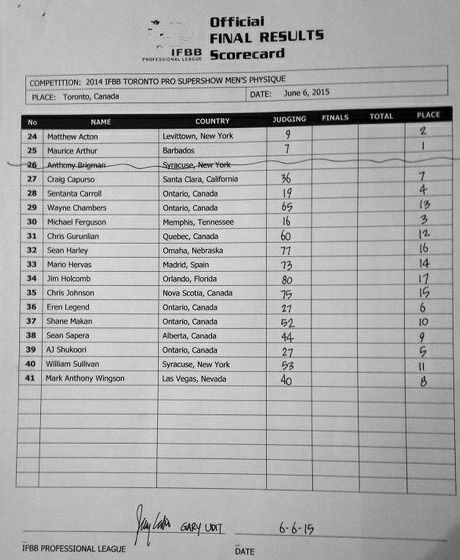 Official
FINAL RESULTS
Scorecard
IFBB
PROFESSIONAL LEAGUE
COMPETITION: 2014 IFBB TORONTO PRO SUPERSHOW MEN'S PHYSIQUE
PLACE: Toronto, Canada DATE: June 6, 2015
No NAME COUNTRY JUDGING FINALS TOTAL PLACE
24 Matthew Acton Levittown, New York 9 2
25 Maurice Arthur Barbados 7 1
26 Anthony Brigman Syracuse, New York
27 Craig Capurso Santa Clara, California 36 7
28 Sentanta Carroll Ontario, Canada 19 4
29 Wayne Chambers Ontario, Canada 65 13
30 Michael Ferguson Memphis, Tennessee 16 3
31 Chris Gurunlian Quebec, Canada 60 12
32 Sean Harley Omaha, Nebraska 77 16
33 Mario Hervas Madrid, Spain 73 14
34 Jim Holcomb Orlando, Florida 80 17
35 Chris Johnson Nova Scotia, Canada 75 15
36 Eren Legend Ontario, Canada 27 6
37 Shane Makan Ontario, Canada 52 10
38 Sean Sapera Alberta, Canada 44 9
39 AJ Shukoori Ontario, Canada 27 5
40 William Sullivan Syracuse, New York 53 11
41 Mark Anthony Wingson Las Vegas, Nevada 40 8
GARY UDIT 6-6-15
IFBB PROFESSIONAL LEAGUE DATE